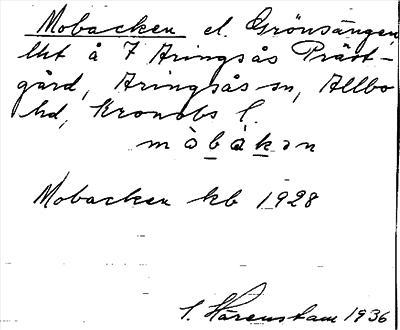 Mobacken el. Grönsängen,
lht å 7 Aringsås Präst-
gård, Aringsås sn, Allbo
hd, Kronobs l.
mòbákən
Mobacken kb 1928
S. Härenstam 1936